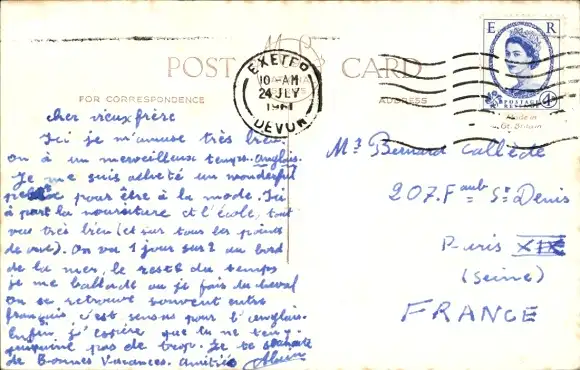 POST CARD
FOR CORRESPONDENCE
ADDRESS
EXETER
10-AM
24 JLY
1961
DEVON
E R
POSTAGE
REVENUE
4D
Made in
Gt. Britain
cher vieux frère
Ici je m'amuse très bien
on a un merveilleux temps anglais.
Je me suis acheté un wonderful
pour être à la mode. Ici
à part la nourriture et l'école, tout
va très bien (et sur tous les points
de vue). On va 1 jour sur 2 au bord
de la mer, le reste du temps
je me ballade ou je fais du cheval
On se retrouve souvent entre
français c'est sensas pour l'anglais.
Enfin j'espère que tu ne t'en
pas de trop. Je te souhaite
de Bonnes Vacances. Amitiés Alain
Mr Bernard Callède
207 Faub St Denis
Paris XIX
(Seine)
FRANCE